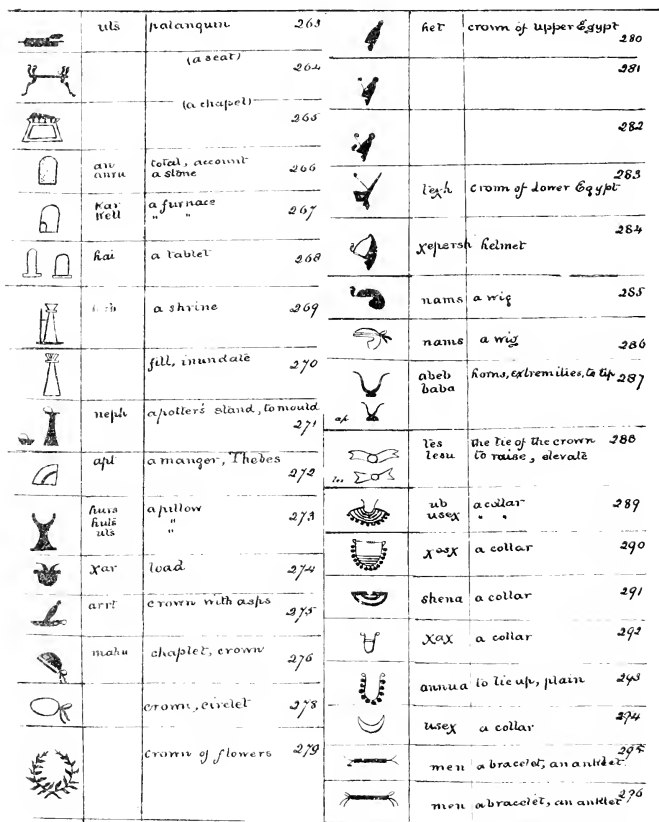 uts palanquin 263
(a seat)
264
(a chapel)
265
an total, account
anru a stone 266
Kar a furnace
Kell " " 267
hai a tablet 268
a shrine 269
fill, inundate
270
neph a potter's stand, to mould
271
apt a manger, Thebes
272
huis a pillow
huls " 273
uls "
χar load 274
arrt crown with asps
275
mahu chaplet, crown
276
crown, circlet 278
crown of flowers 279
het crown of upper Egypt
280
281
282
283
crown of Lower Egypt
284
χepersh helmet
nams a wig 285
nams a wig 286
abeb horns, extremities, to tip 287
baba
ap
tes the tie of the crown 288
tesu to raise, elevate
tes
ub a collar 289
useχ " "
χasχ a collar 290
shena a collar 291
χaχ a collar 292
annua to tie up, plain 293
useχ a collar 294
295
men a bracelet, an anklet
men a bracelet, an anklet 296